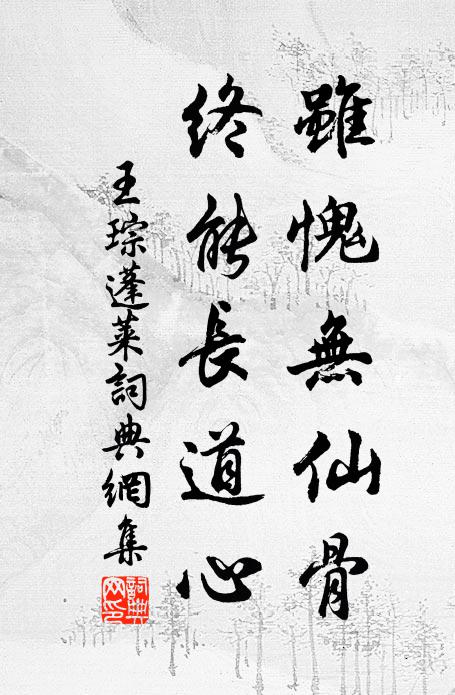 雖愧無仙骨
終能長道心
王琮蓬萊詞典網集
詞典網印